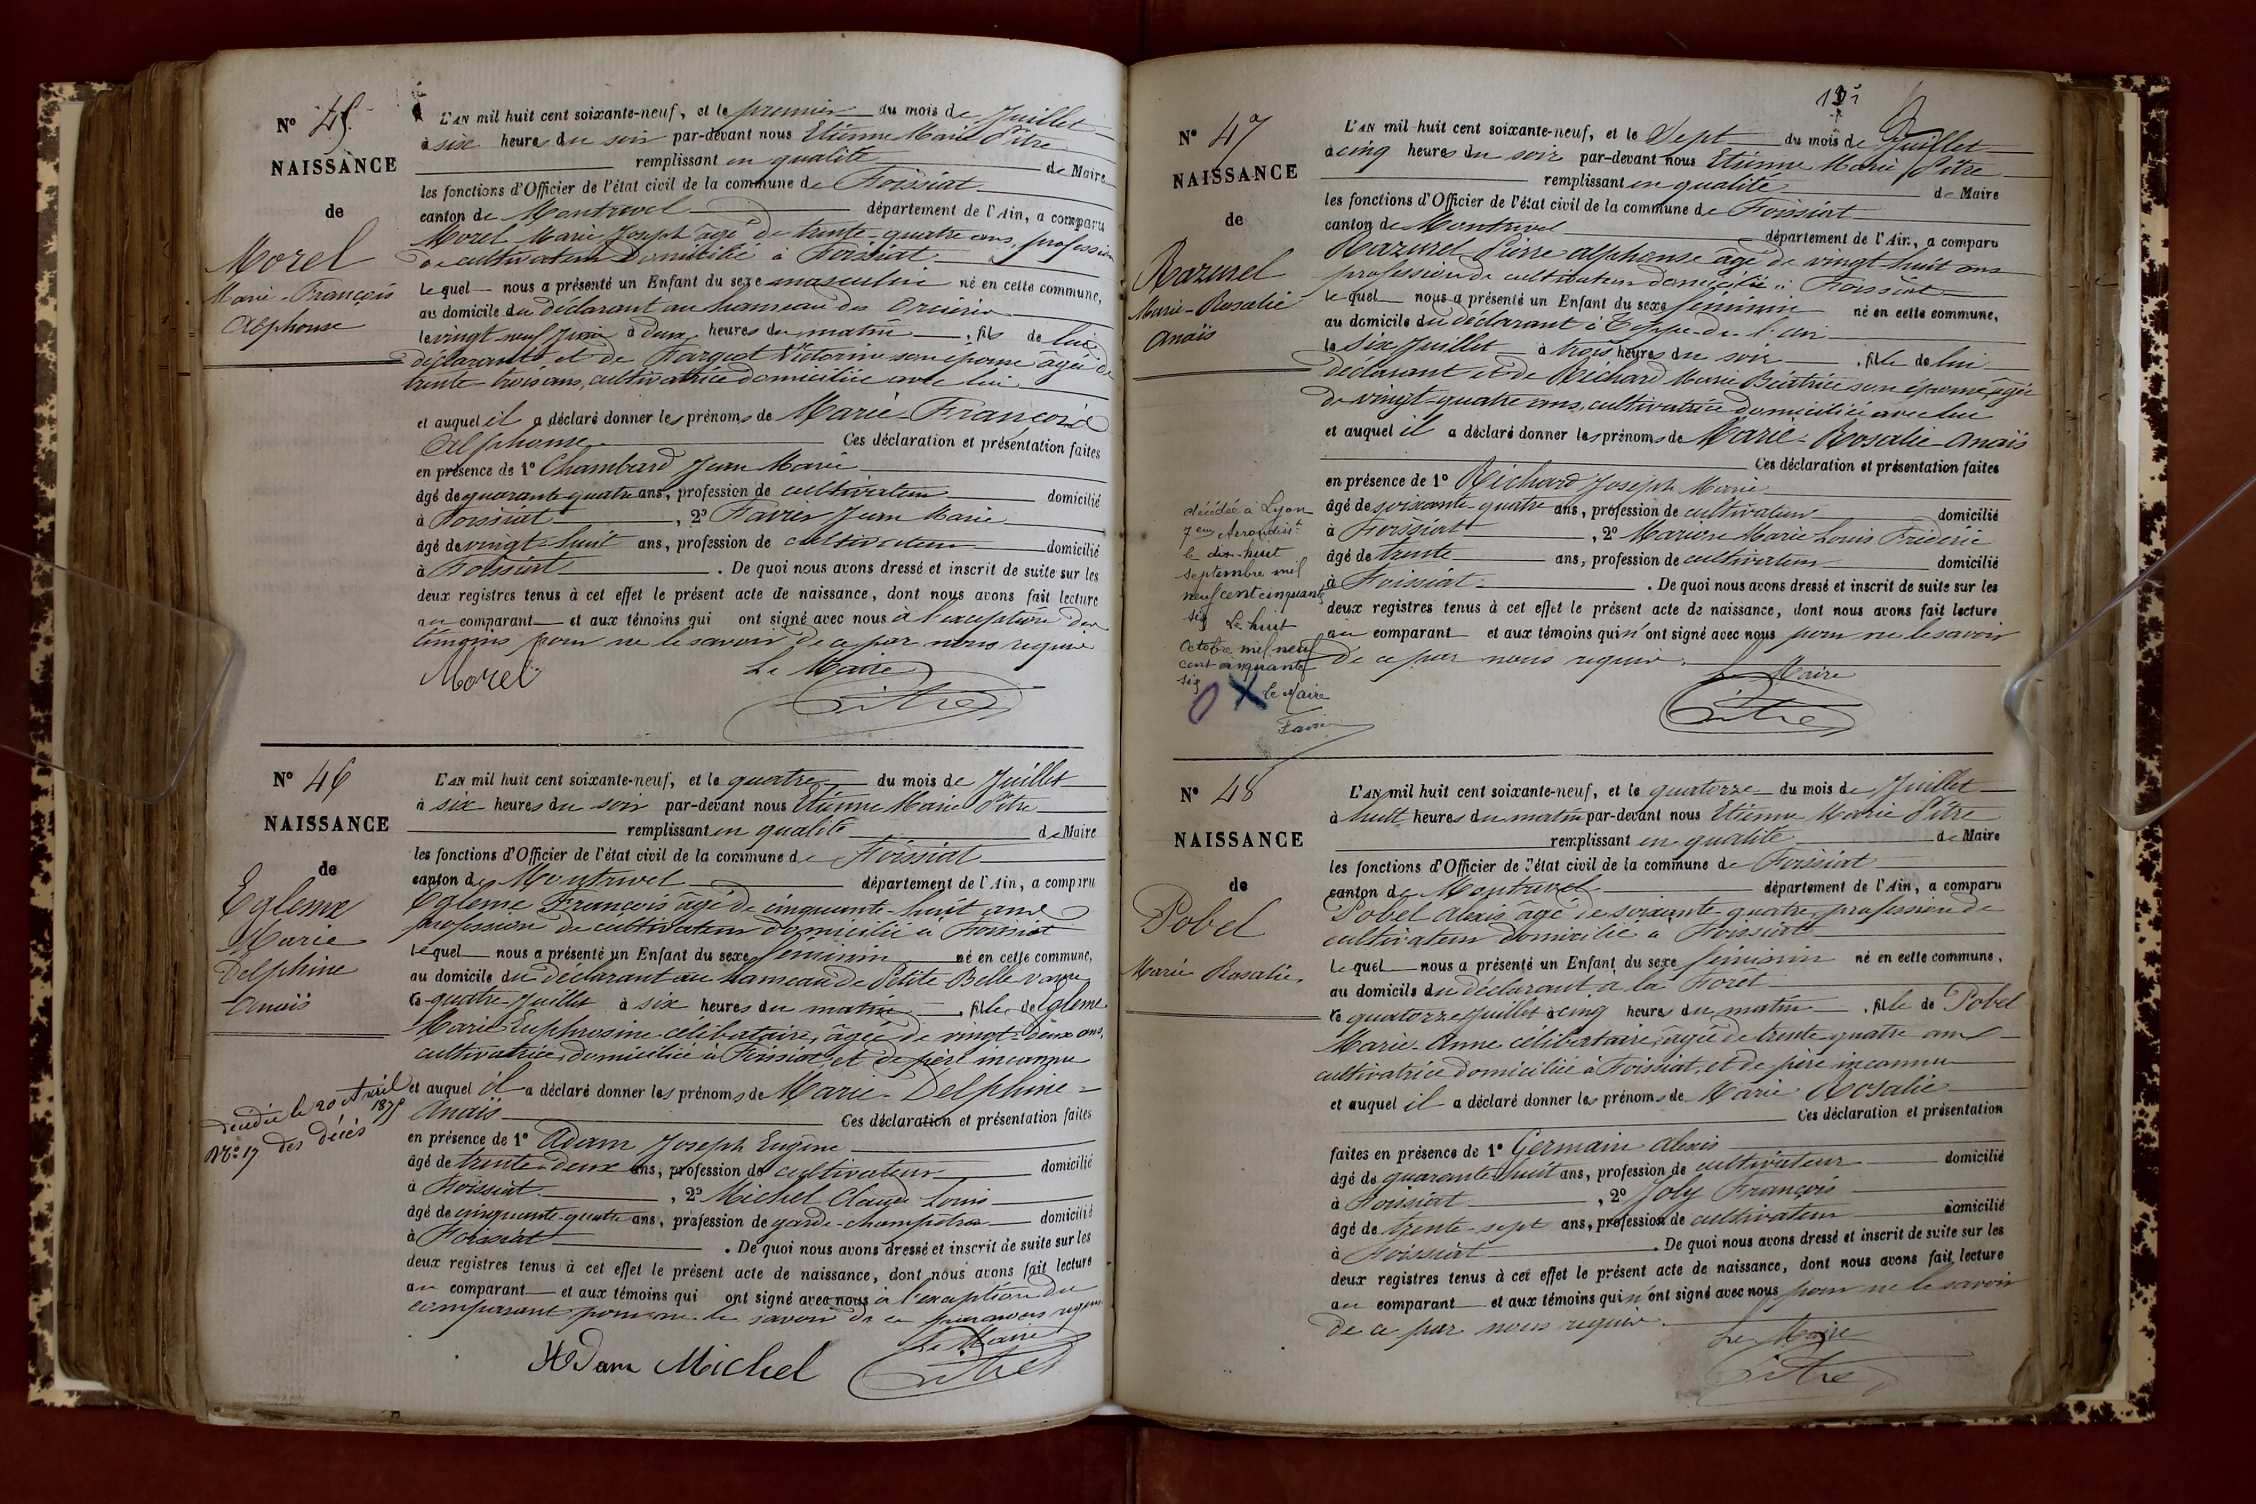 N° 45
NAISSANCE
de
Morel
Marie-François
Alphonse
L'AN mil huit cent soixante-neuf, et le premier du mois de Juillet
à six heures du soir par-devant nous Etienne Marie Pitre
remplissant en qualité de Maire
les fonctions d'Officier de l'état civil de la commune de Foissiat
canton de Montrevel département de l'Ain, a comparu
Morel Marie Joseph âgé de trente-quatre ans, profession
de cultivateur domicilié à Foissiat
lequel nous a présenté un Enfant du sexe masculin né en cette commune,
au domicile du déclarant au hameau des
le vingt neuf Juin à deux heures du matin, fils de lui
déclarant et de Farguet Victorine son épouse âgée de
trente-trois ans, cultivatrice domiciliée avec lui
et auquel il a déclaré donner les prénoms de Marie-François
Alphonse Ces déclaration et présentation faites
en présence de 1° Chambard Jean Marie
âgé de quarante quatre ans, profession de cultivateur domicilié
à Foissiat, 2° Favier Jean Marie
âgé de vingt-huit ans, profession de cultivateur domicilié
à Foissiat. De quoi nous avons dressé et inscrit de suite sur les
deux registres tenus à cet effet le présent acte de naissance, dont nous avons fait lecture
au comparant et aux témoins qui ont signé avec nous à l'exception des
témoins pour ne le savoir de ce par nous requis
Morel Le Maire
Pitre
N° 46
NAISSANCE
de
Egleme
Marie
Delphine
Anaïs
décédée le 20 Avril
187
N° 17 des décès
L'AN mil huit cent soixante-neuf, et le quatre du mois de Juillet
à six heures du soir par-devant nous Etienne Marie Pitre
remplissant en qualité de Maire
les fonctions d'Officier de l'état civil de la commune de Foissiat
canton de Montrevel département de l'Ain, a comparu
Egleme François âgé de cinquante-huit ans
profession de cultivateur domicilié à Foissiat
lequel nous a présenté un Enfant du sexe féminin né en cette commune,
au domicile du déclarant au hameau de Petite Belle
le quatre Juillet à six heures du matin, fille de Egleme
Marie Euphrosine célibataire, âgée de vingt-deux ans,
cultivatrice, domiciliée à Foissiat, et de père inconnu
et auquel il a déclaré donner les prénoms de Marie-Delphine-
Anaïs Ces déclaration et présentation faites
en présence de 1° Adam Joseph Eugène
âgé de trente-deux ans, profession de cultivateur domicilié
à Foissiat, 2° Michel Claude Louis
âgé de cinquante-quatre ans, profession de garde-champêtre domicilié
à Foissiat. De quoi nous avons dressé et inscrit de suite sur les
deux registres tenus à cet effet le présent acte de naissance, dont nous avons fait lecture
au comparant et aux témoins qui ont signé avec nous à l'exception du
comparant pour ne le savoir de ce par nous requis
Le Maire
Adam Michel Pitre
N° 47
NAISSANCE
de
Razurel
Marie-Rosalie
Anaïs
décédée à Lyon
7ème Arrondist
le dix-huit
septembre mil
neuf cent cinquante
six Le huit
Octobre mil neuf
cent cinquante
six
Le Maire
L'AN mil huit cent soixante-neuf, et le Sept du mois de Juillet
à cinq heures du soir par-devant nous Etienne Marie Pitre
remplissant en qualité de Maire
les fonctions d'Officier de l'état civil de la commune de Foissiat
canton de Montrevel département de l'Ain, a comparu
Razurel Pierre alphonse âgé de vingt-huit ans
profession de cultivateur domicilié à Foissiat
lequel nous a présenté un Enfant du sexe féminin né en cette commune,
au domicile du déclarant à
le Six Juillet à trois heures du soir, fille de lui
déclarant et de Richard Marie Béatrice son épouse, âgée
de vingt-quatre ans, cultivatrice domiciliée avec lui
et auquel il a déclaré donner les prénoms de Marie-Rosalie-Anaïs
Ces déclaration et présentation faites
en présence de 1° Richard Joseph Marie
âgé de soixante-quatre ans, profession de cultivateur domicilié
à Foissiat, 2° Marion Marie Louis Frédéric
âgé de trente ans, profession de cultivateur domicilié
à Foissiat. De quoi nous avons dressé et inscrit de suite sur les
deux registres tenus à cet effet le présent acte de naissance, dont nous avons fait lecture
au comparant et aux témoins qui n'ont signé avec nous pour ne le savoir
de ce par nous requis.
Le Maire
Pitre
N° 48
NAISSANCE
de
Pobel
Marie Rosalie.
L'AN mil huit cent soixante-neuf, et le quatorze du mois de Juillet
à huit heures du matin par-devant nous Etienne Marie Pitre
remplissant en qualité de Maire
les fonctions d'Officier de l'état civil de la commune de Foissiat
canton de Montrevel département de l'Ain, a comparu
Pobel Alexis âgé de soixante-quatre, profession de
cultivateur domicilié à Foissiat
lequel nous a présenté un Enfant du sexe féminin né en cette commune,
au domicile du déclarant à la Forêt
le quatorze Juillet à cinq heures du matin, fille de Pobel
Marie-Anne célibataire, âgée de trente quatre ans
cultivatrice domiciliée à Foissiat, et de père inconnu
et auquel il a déclaré donner les prénoms de Marie Rosalie
Ces déclaration et présentation
faites en présence de 1° Germain Alexis
âgé de quarante-huit ans, profession de cultivateur domicilié
à Foissiat, 2° Joly François
âgé de trente-sept ans, profession de cultivateur domicilié
à Foissiat. De quoi nous avons dressé et inscrit de suite sur les
deux registres tenus à cet effet le présent acte de naissance, dont nous avons fait lecture
au comparant et aux témoins qui n'ont signé avec nous pour ne le savoir
de ce par nous requis.
Le Maire
Pitre